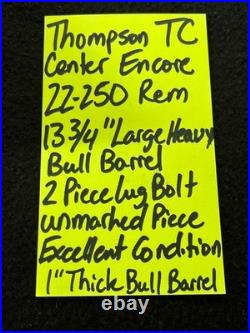 Thompson TC
Center Encore
22-250 Rem
13 3/4" Large Heavy
Bull Barrel
2 Piece Lug Bolt
unmarked Piece
Excellent Condition
1" Thick Bull Barrel